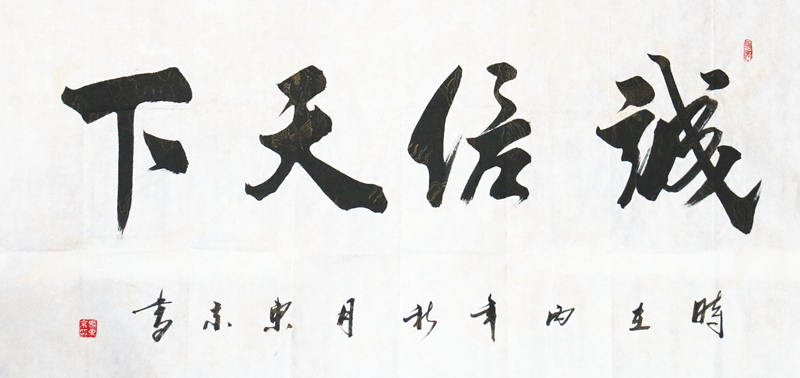 誠信天下
時在丙年秋月東京書